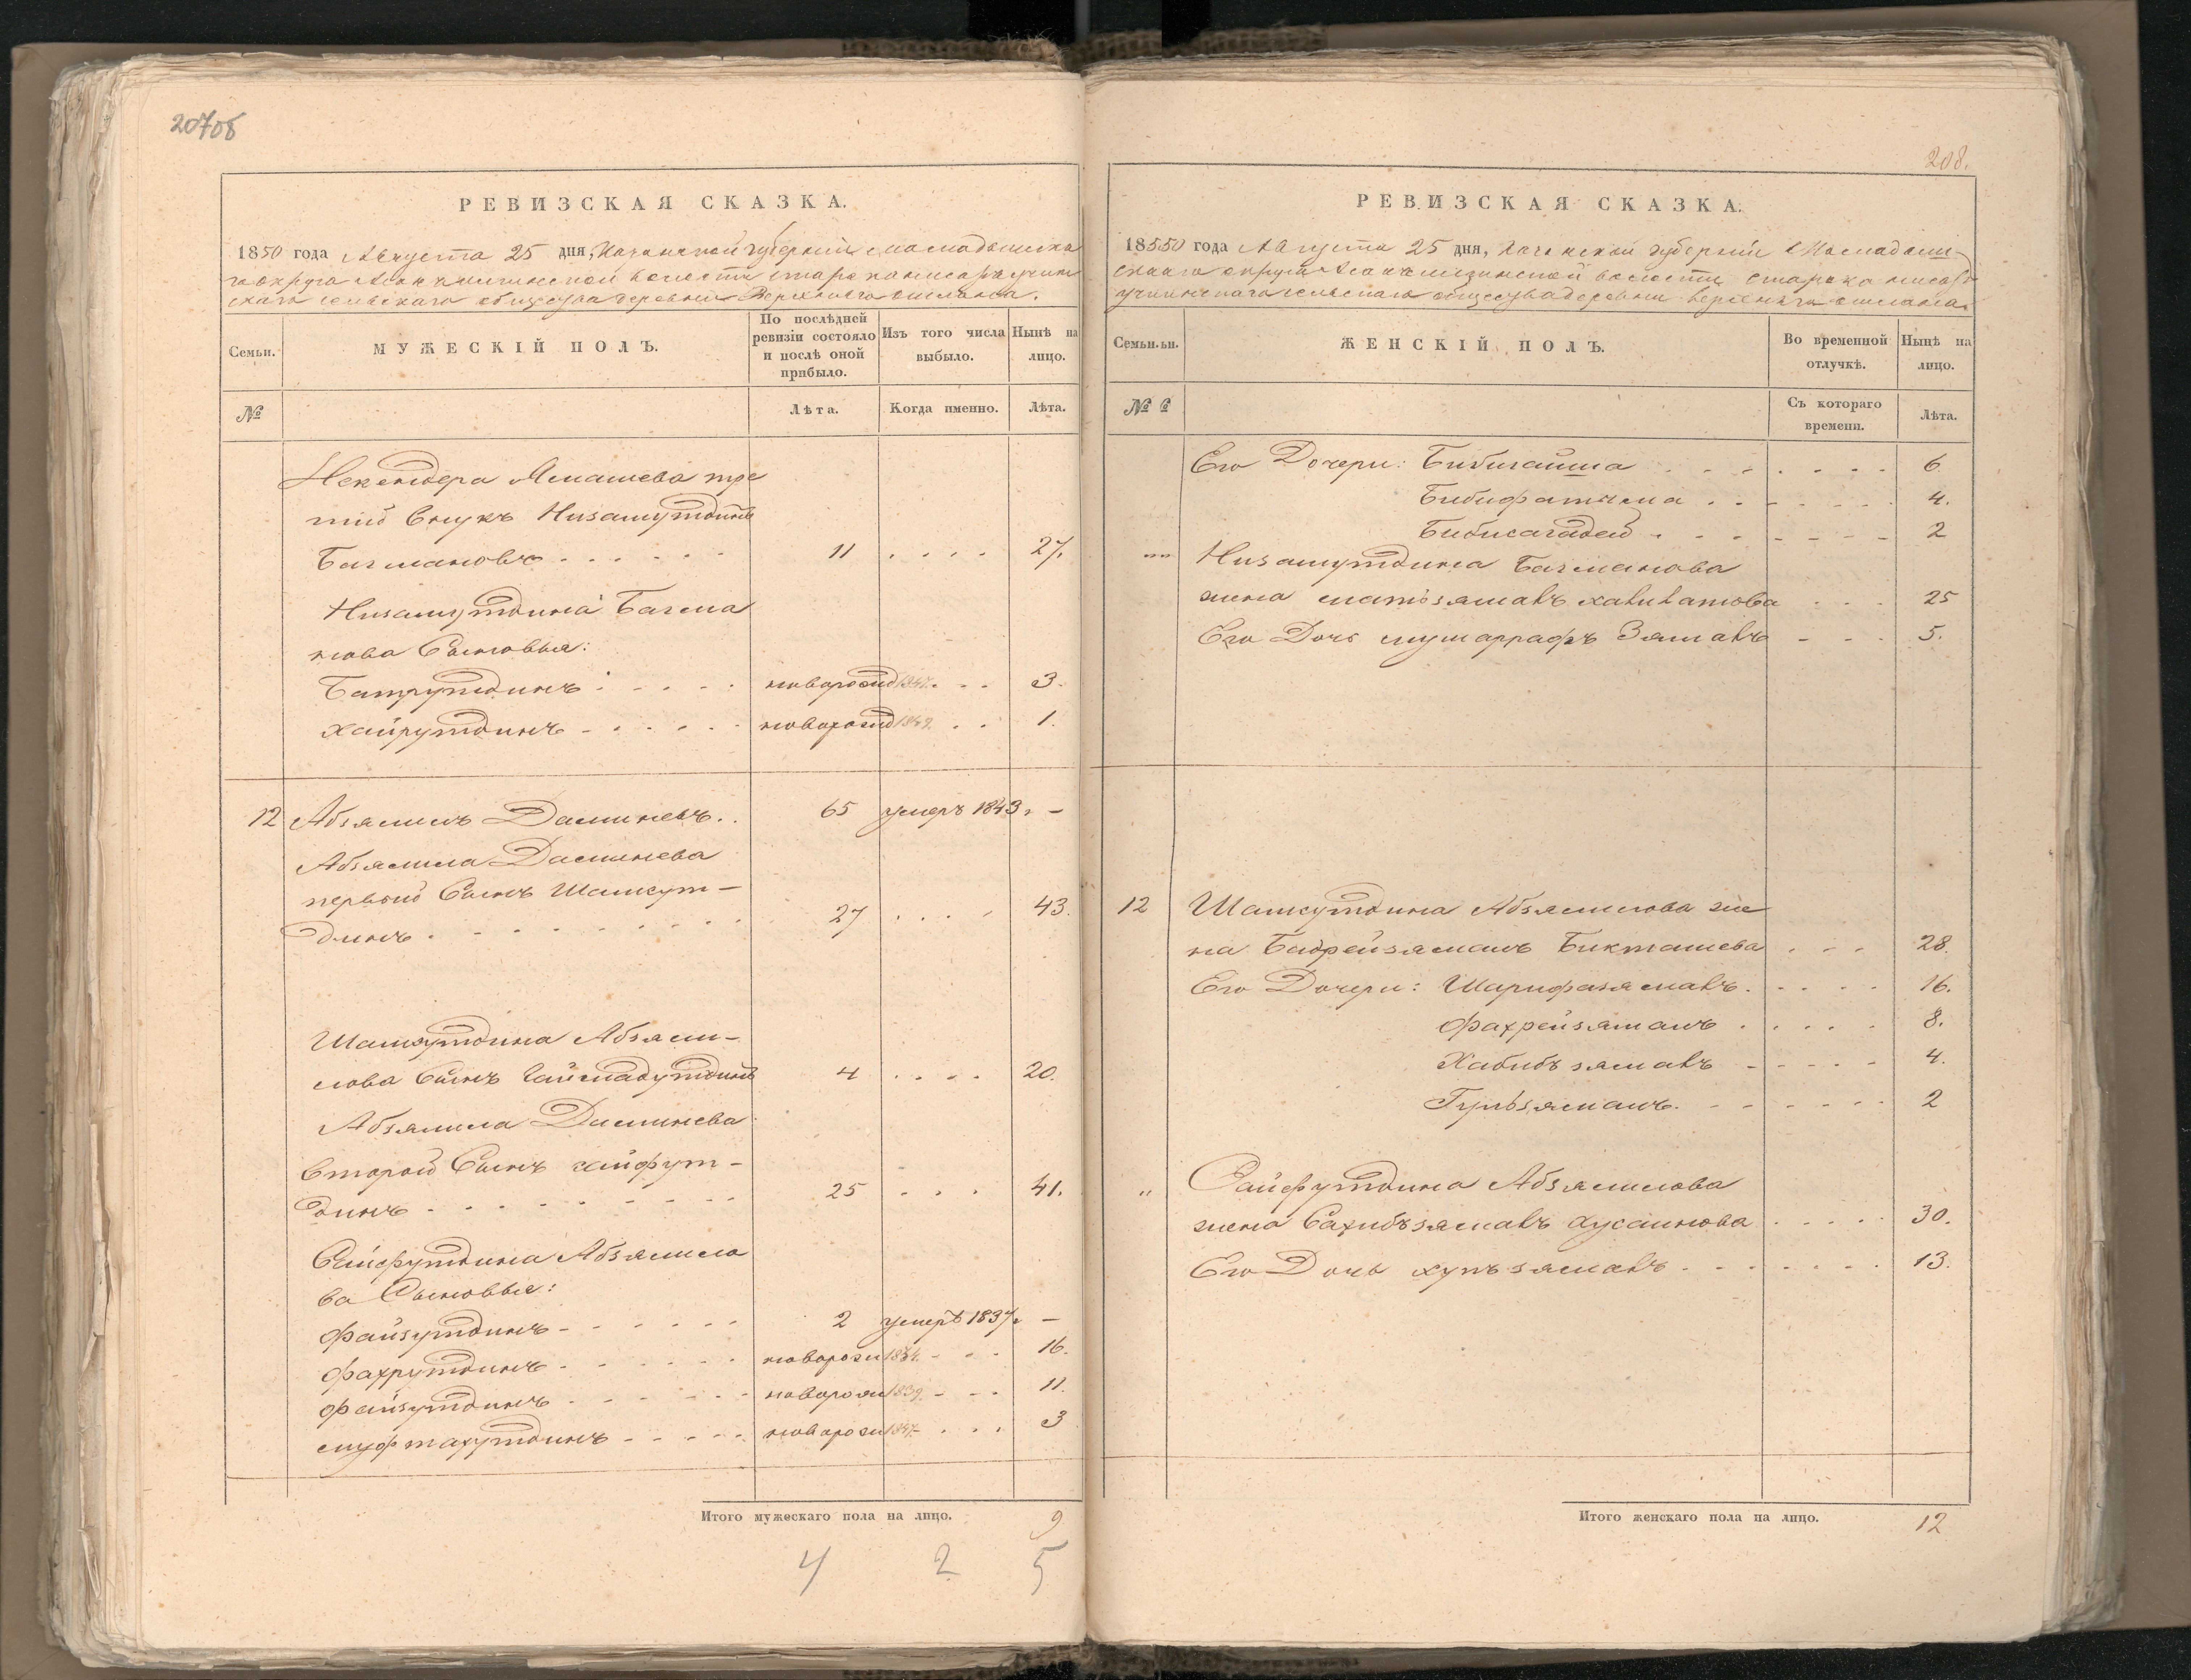 207об
РЕВИЗСКАЯ СКАЗКА.
1850 года Августа 25 дня, Казанской губернии Мамадышска
го округа волости
скаго сельскаго общества деревни Верхняго Ошланга.
Семьи.
МУЖЕСКІЙ ПОЛЪ.
По послѣдней ревизіи состояло и послѣ оной прибыло.
Изъ того числа выбыло.
Нынѣ на лицо.
№
Лѣта.
Когда именно.
Лѣта.
Искендера Ямашева тре
тий внукъ Низамутдинъ
Багмановъ 11 27.
Низамутдина Багма
нова Сыновья:
Батрутдинъ новорожд 1847. 3.
Хайрутдинъ новорожд 1849. 1.
12 Абзямилъ Даминевъ 65 умеръ 1843. –
Абзямила Даминева
первой Сынъ Шамсут-
динъ 27 43.
Шамсутдина Абзями-
лова Сынъ Гаймадутдинъ 4 20.
Абзямила Даминева
второй Сынъ сайфут-
динъ 25 41.
Сайфутдина Абзямило
ва Сыновья:
Файзутдинъ 2 умеръ 1837. –
Фахрутдинъ новорож 1834. 16.
Файзутдинъ новорож 1839. 11.
муфтахутдинъ новорож 1847. 3
Итого мужескаго пола на лицо. 9
4 2 5
208.
РЕВИЗСКАЯ СКАЗКА.
18550 года Августа 25 дня, Казанской губернии Мамадыш-
скаго округа волости
сельскаго общества деревни верхняго ошланга.
Семьи.ьи.
ЖЕНСКІЙ ПОЛЪ.
Во временной отлучкѣ.
Нынѣ на лицо.
№
Съ котораго времени.
Лѣта.
Его Дочери: Бибигайша 6
Бибифатыма 4.
Бибисагадей 2
Низамутдина Багманова
жена хабибатова 25
Его Дочь мушаррафъ Зямалъ 5.
12 Шамсутдина Абзямилова же
на Бадрейзямалъ Бикташева 28.
Его Дочери: Шарифазямалъ 16.
Фахрейзямалъ 8.
Хабибзямалъ 4.
Гульзямалъ 2
" Сайфутдина Абзямилова
жена Сахибзямалъ Хусаинова 30.
Его Дочь хупъзямалъ 13.
Итого женскаго пола на лицо. 12